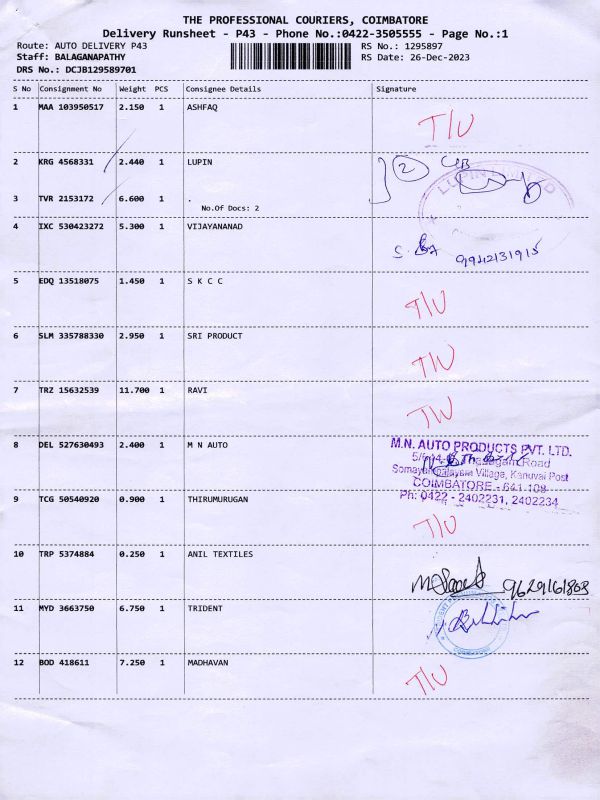 THE PROFESSIONAL COURIERS, COIMBATORE
Delivery Runsheet - P43 - Phone No.:0422-3505555 - Page No.:1
Route: AUTO DELIVERY P43 RS No.: 1295897
Staff: BALAGANAPATHY RS Date: 26-Dec-2023
DRS No.: DCJB129589701
S No Consignment No Weight PCS Consignee Details Signature
1 MAA 103950517 2.150 1 ASHFAQ
T/U
2 KRG 4568331 2.440 1 LUPIN
2
LUPIN LIMITED
3 TVR 2153172 6.600 1 .
No.Of Docs: 2
4 IXC 530423272 5.300 1 VIJAYANANAD
9942131915
5 EDQ 13518075 1.450 1 S K C C
T/U
6 SLM 335788330 2.950 1 SRI PRODUCT
T/U
7 TRZ 15632539 11.700 1 RAVI
T/U
8 DEL 527630493 2.400 1 M N AUTO
M.N. AUTO PRODUCTS PVT. LTD.
Thadagam Road
Somayampalayam Village, Kanuvai Post
COIMBATORE - 641 108
Ph: 0422 - 2402231, 2402234
9 TCG 50540920 0.900 1 THIRUMURUGAN
T/U
10 TRP 5374884 0.250 1 ANIL TEXTILES
9629161803
11 MYD 3663750 6.750 1 TRIDENT
12 BOD 418611 7.250 1 MADHAVAN
T/U